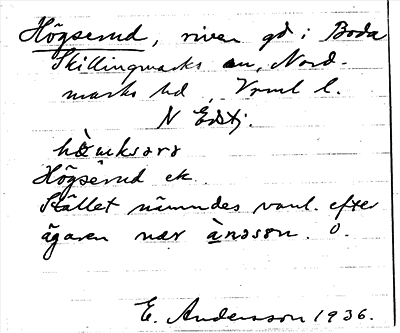 Högserud, riven gd i Boda
Skillingmarks sn, Nord-
marks hd, Vrml l.
N Edstj.
Högserud ek.
Stället nämndes vanl. efter
ägaren när ànəsən. 0.
E. Andersson 1936.